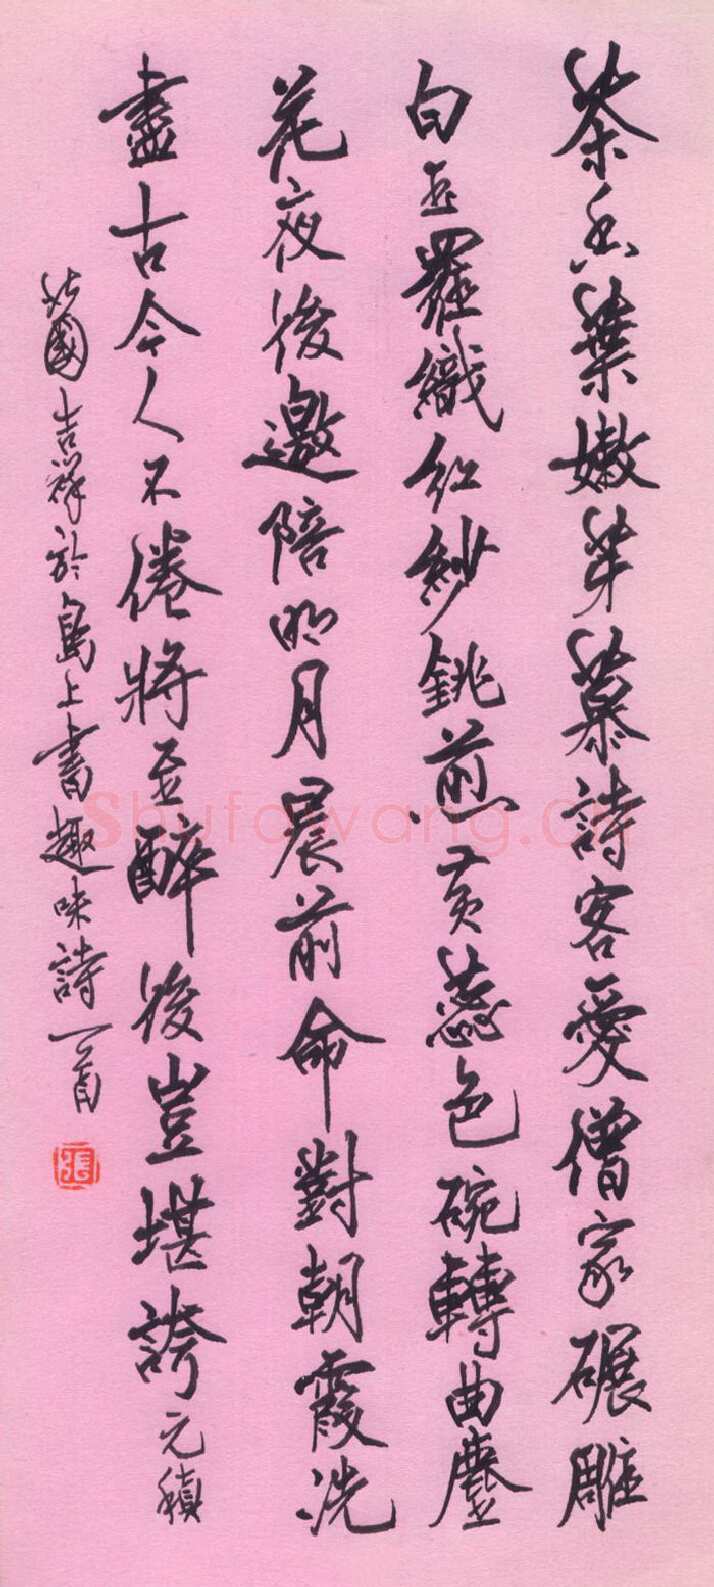 茶香葉嫩芽慕詩客愛僧家碾雕
白玉羅織紅紗銚煎黃蕊色碗轉曲塵
花夜後邀陪明月晨前命對朝霞洗
盡古今人不倦將至醉後豈堪誇元稹
北國吉祥於島上書趣味詩一首
張
Shufawang.cn